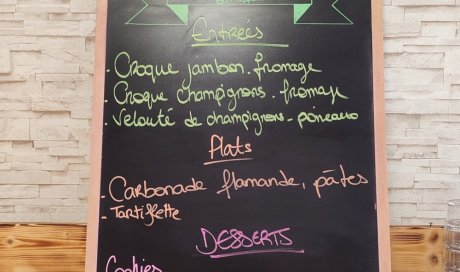 Entrées
- Croque jambon. fromage
- Croque champignons. fromage
- Velouté de champignons - poireaux
Plats
- Carbonade flamande, pâtes
- Tartiflette
DESSERTS
Cookies